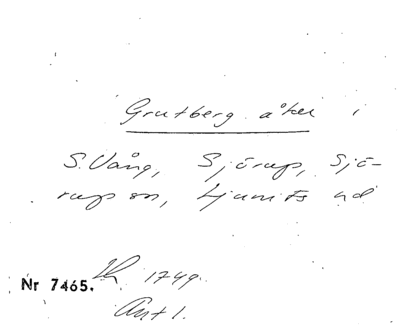 Grutberg åker i
S. Vång, Sjörup, Sjö-
rup sn, Ljunits hd
1749.
Nr 7465.
Akt 1.